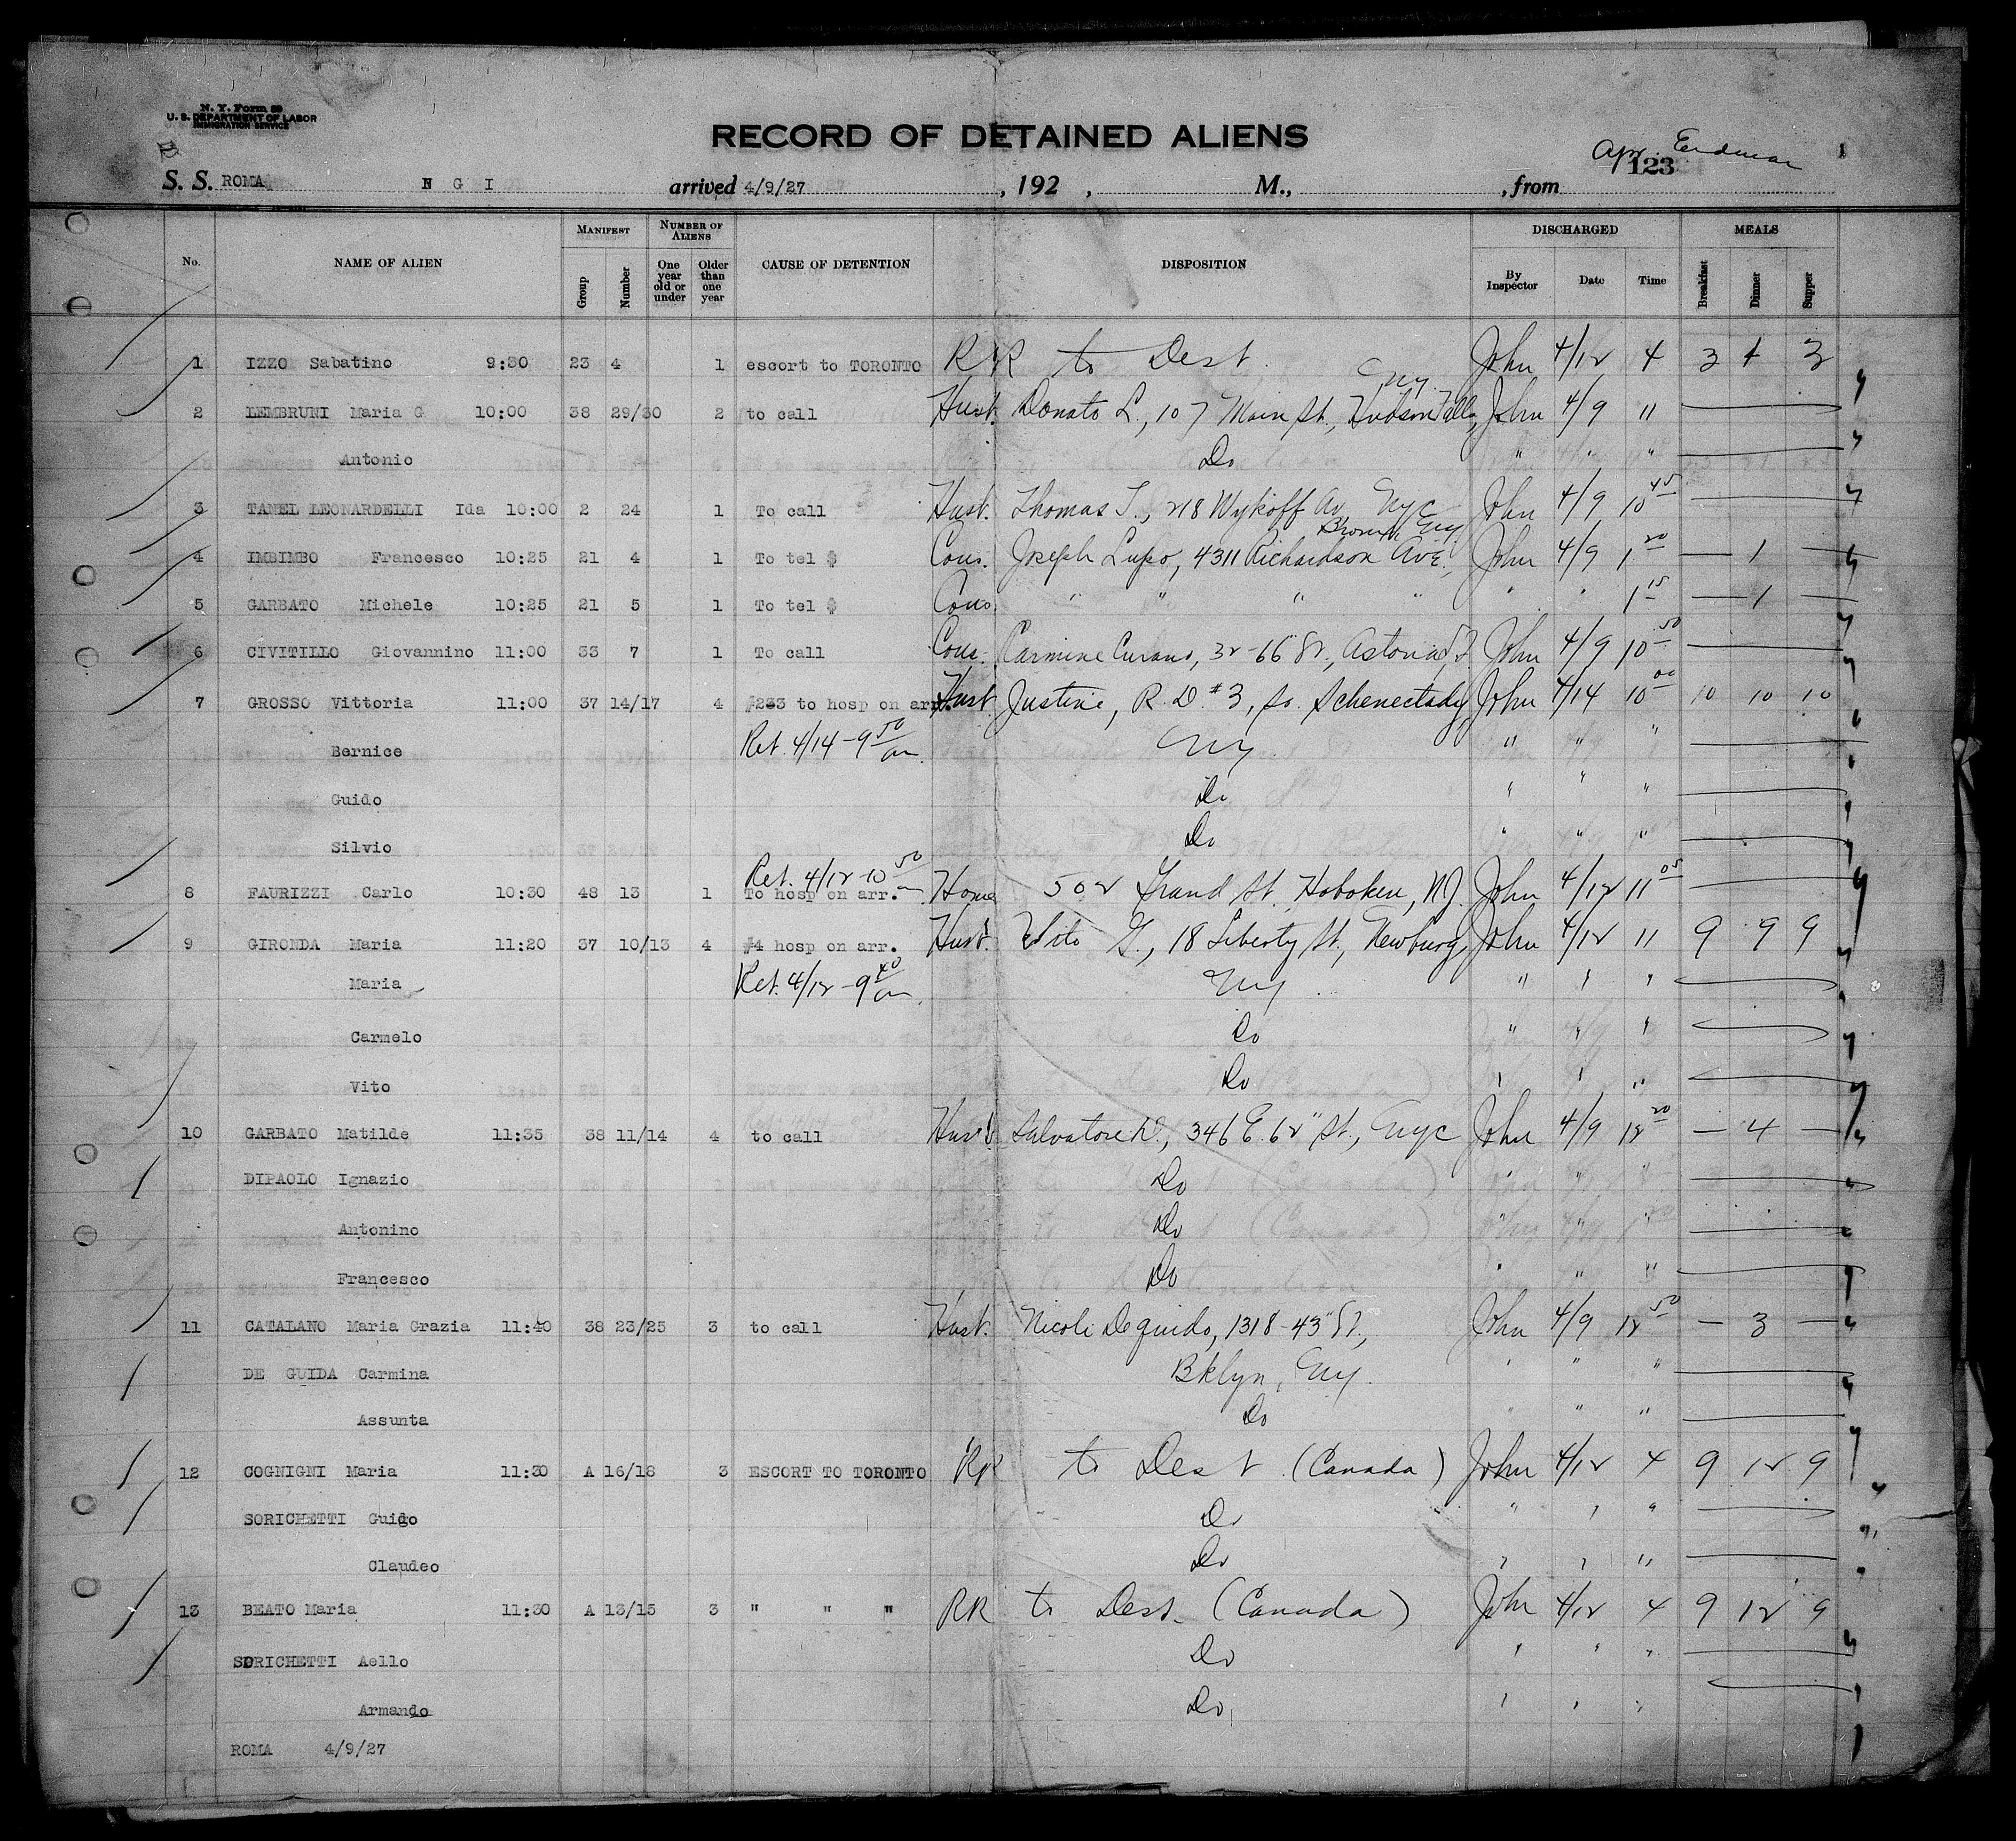 N. Y. Form 89
U. S. DEPARTMENT OF LABOR
IMMIGRATION SERVICE
RECORD OF DETAINED ALIENS
Apr. Eerdman
S. S. ROMA N G I arrived 4/9/27, 192 , M., , from 123
No. NAME OF ALIEN MANIFEST Group Number NUMBER OF ALIENS One year old or under Older than one year CAUSE OF DETENTION DISPOSITION DISCHARGED By Inspector Date Time MEALS Breakfast Dinner Supper
1 IZZO Sabatino 9:30 23 4 1 escort to TORONTO RR to Dest. John 4/12 4 3 4 3
2 LEMBRUNI Maria G 10:00 38 29/30 2 to call Husb. Donato L., 107 Main St., Hudson Falls, NY. John 4/9 11
Antonio Do " " "
3 TANEL LEONARDELLI Ida 10:00 2 24 1 To call Husb. Thomas T., 218 Wykoff Av, NYC John 4/9 10 45
4 IMBIMBO Francesco 10:25 21 4 1 To tel $ Cous. Joseph Lupo, 4311 Richardson Ave., Bronx, NY. John 4/9 1 20 — 1 —
5 GARBATO Michele 10:25 21 5 1 To tel $ Cous " " " " " " 1 15 — 1 —
6 CIVITILLO Giovannino 11:00 33 7 1 To call Cous. Carmine Curano, 32-66 St., Astoria, L.I. John 4/9 10 50
7 GROSSO Vittoria 11:00 37 14/17 4 #233 to hosp on arr. Husb. Justine, R. D. #3, So. Schenectady John 4/14 10 00 10 10 10
Bernice Ret. 4/14 - 9 50 am. NY. " " "
Guido Do " " "
Silvio Do " " "
8 FAURIZZI Carlo 10:30 48 13 1 To hosp on arr. Ret. 4/12 - 10 50 Home 502 Grand St. Hoboken, NJ. John 4/12 11 05
9 GIRONDA Maria 11:20 37 10/13 4 #4 hosp on arr. Husb. Vito G., 18 Liberty St., Newburg, John 4/12 11 9 9 9
Maria Ret. 4/12 - 9 40 am. NY. " " "
Carmelo Do " " "
Vito Do " " "
10 GARBATO Matilde 11:35 38 11/14 4 to call Husb Salvatore D., 346 E. 62" St., NYC John 4/9 12 20 — 4 —
DIPAOLO Ignazio Do " " "
Antonino Do " " "
Francesco Do " " "
11 CATALANO Maria Grazia 11:40 38 23/25 3 to call Husb. Nicoli Deguido, 1318-43" St., John 4/9 12 50 — 3 —
DE GUIDA Carmina Bklyn, NY. " " "
Assunta Do " " "
12 COGNIGNI Maria 11:30 A 16/18 3 ESCORT TO TORONTO RR to Dest. (Canada) John 4/12 4 9 12 9
SORICHETTI Guido Do " " "
Claudeo Do " " "
13 BEATO Maria 11:30 A 13/15 3 " " " RR to Dest. (Canada) John 4/12 4 9 12 9
SORICHETTI Aello Do " " "
Armando Do " " "
ROMA 4/9/27